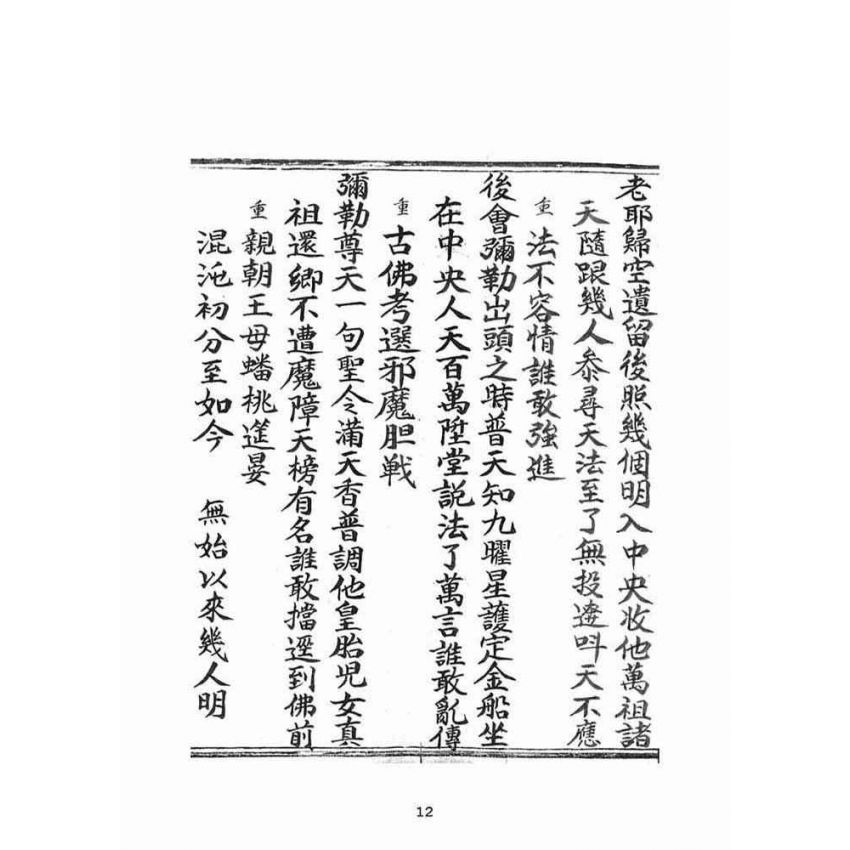 老耶歸空遺留後照幾個明入中央收他萬祖諸
天隨跟幾人叅尋天法至了無投逩呌天不應
重 法不容情誰敢強進
後會彌勒出頭之時普天知九曜星護定金船坐
在中央人天百萬陞堂説法了萬言誰敢亂傳
重 古佛考選邪魔胆戰
彌勒尊天一句聖令滿天香普調他皇胎児女真
祖還鄉不遭魔障天榜有名誰敢擋逕到佛前
重 親朝王母蟠桃筵宴
混沌初分至如今 無始以來幾人明
12